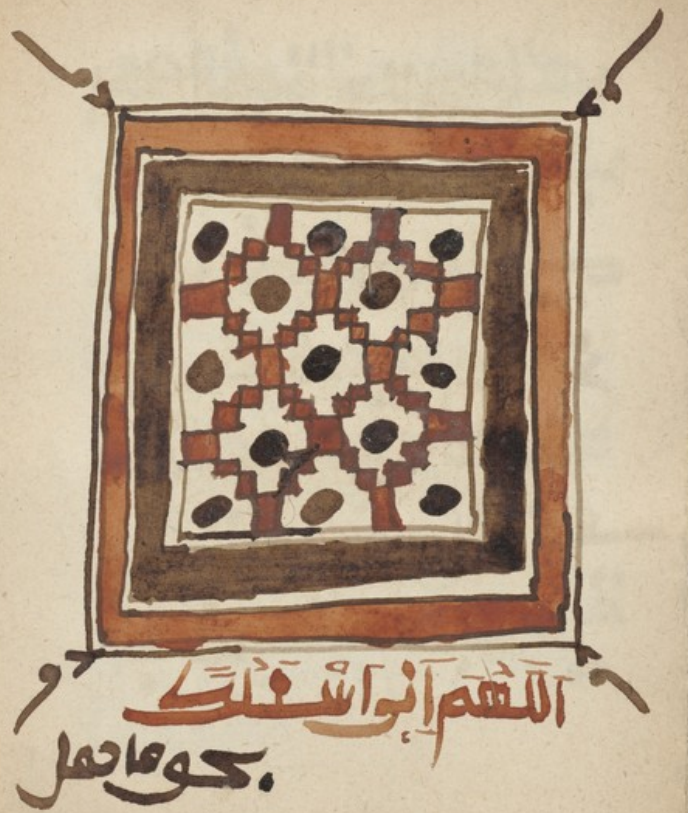 اللهم اني اسئلك
بحق ما حمل